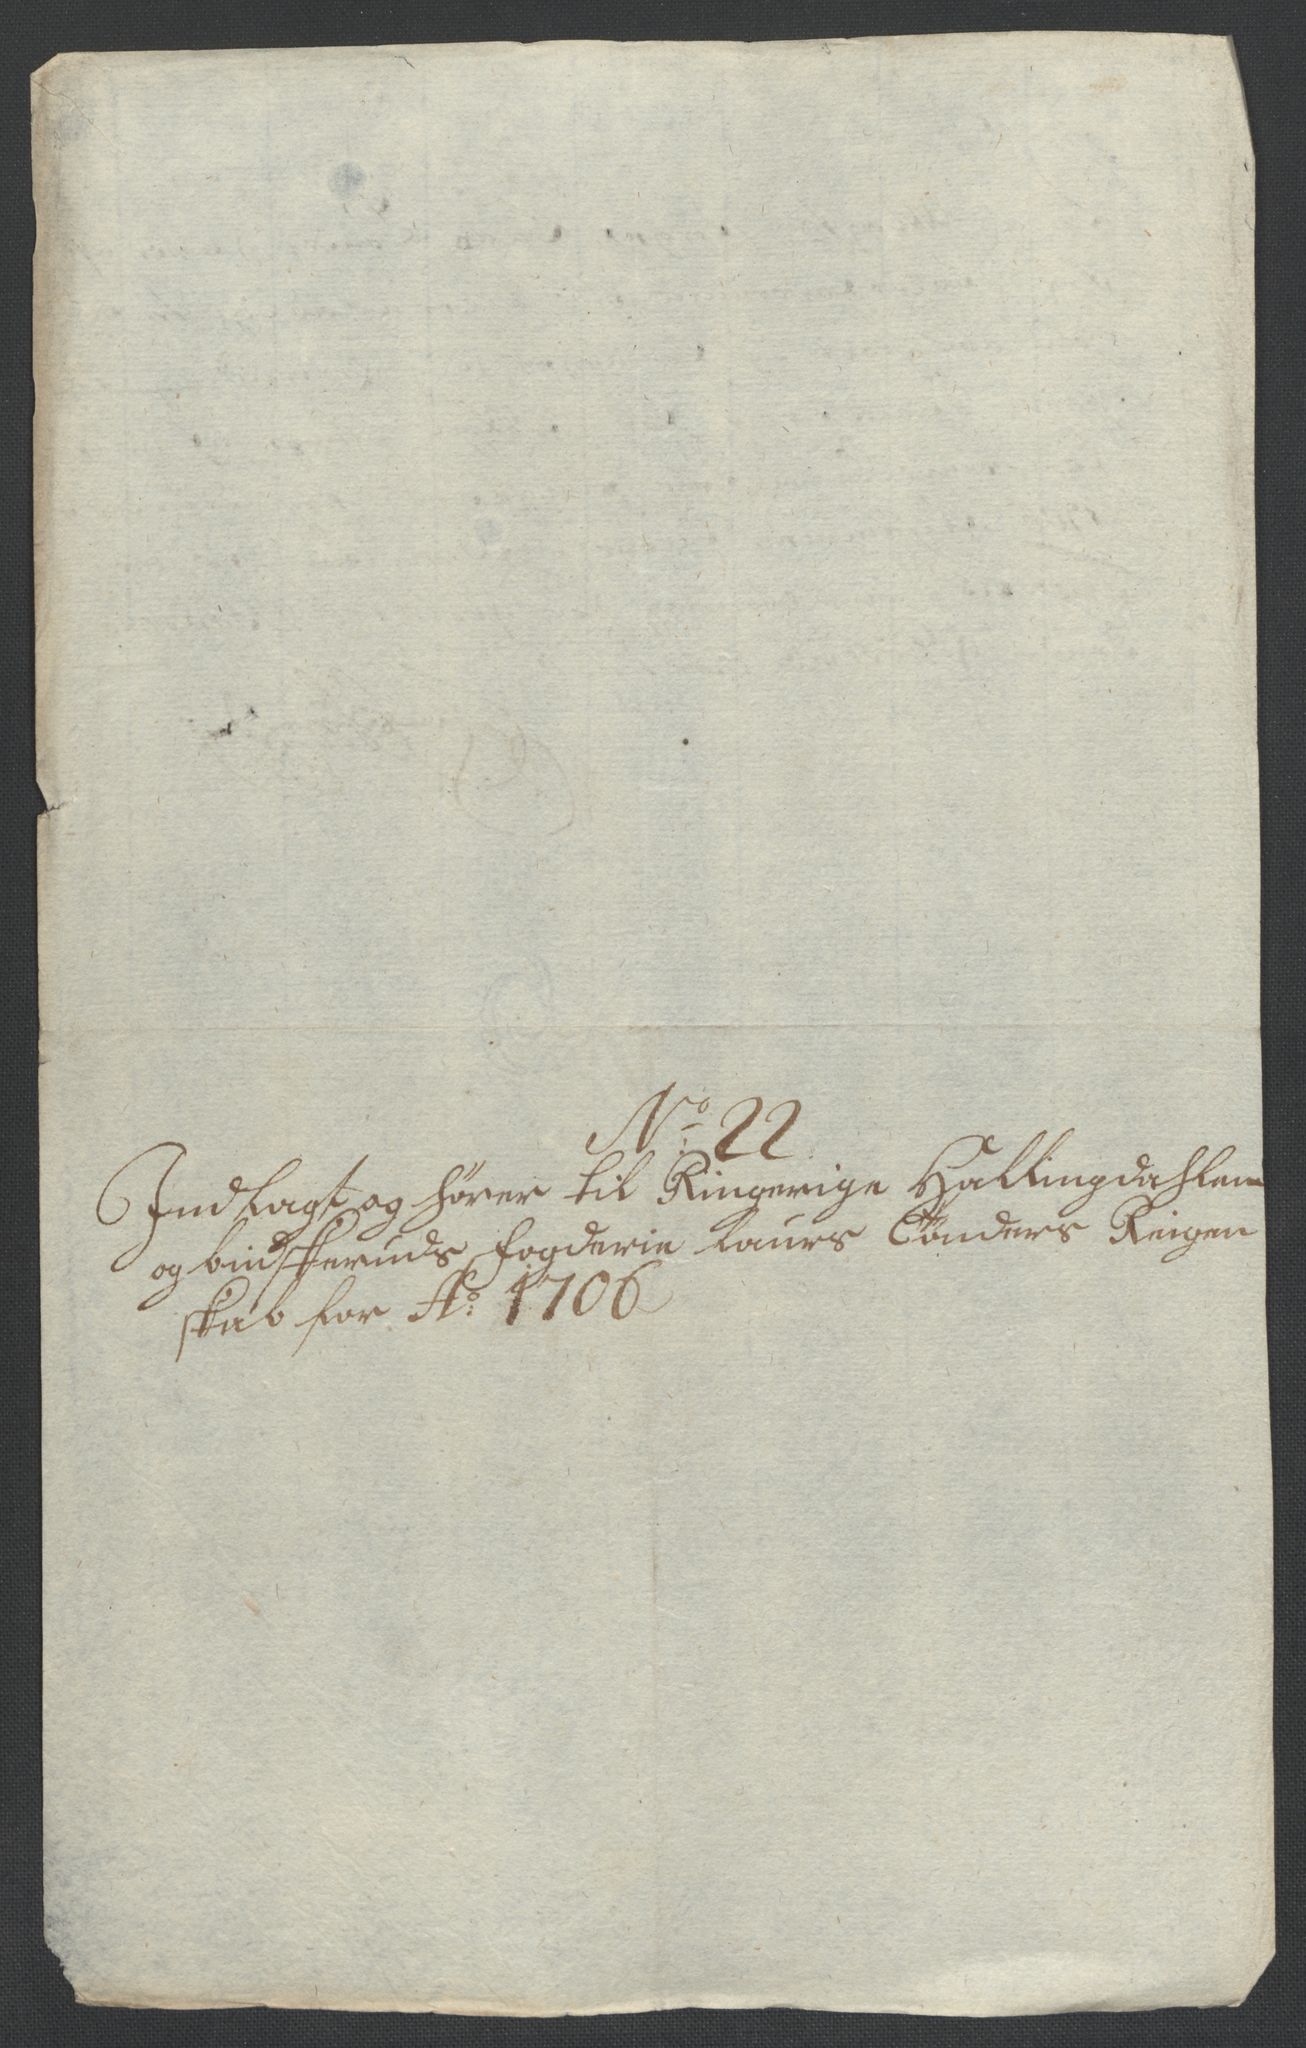 No 22
Indlagt og hører til Ringerige Hallingdahlen
og budskeruds fogderie Laurs Tönders Reigen
skab for Ao: 1706